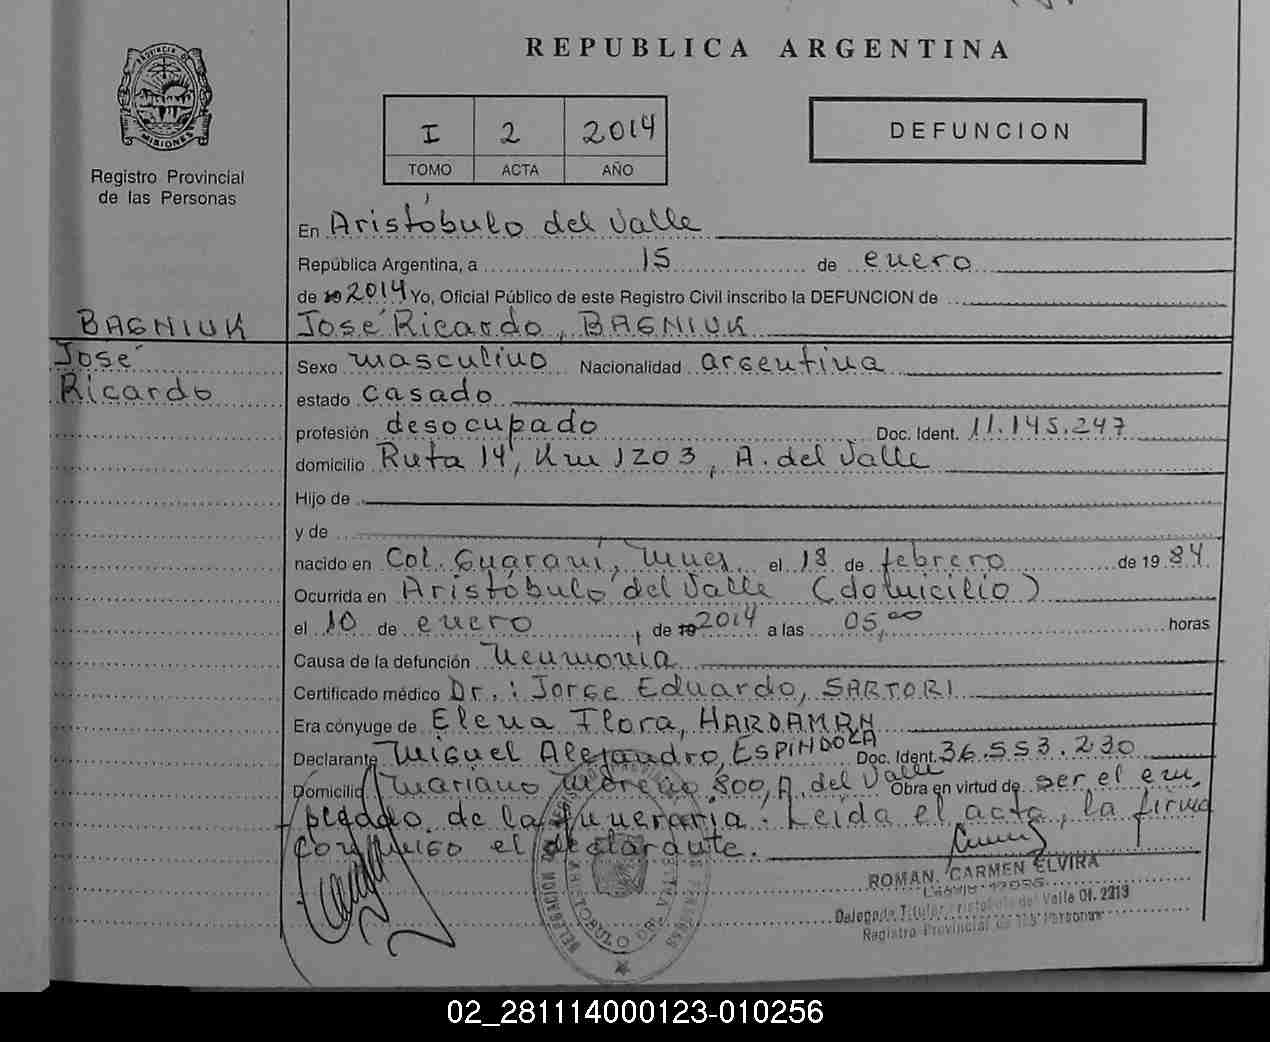 REPUBLICA ARGENTINA
PROVINCIA D
MISIONES
Registro Provincial
de las Personas
I 2 2014
TOMO ACTA AÑO
DEFUNCION
En Aristóbulo del Valle
República Argentina, a 15 de enero
de 2014 Yo, Oficial Público de este Registro Civil inscribo la DEFUNCION de
BAGNIUK
José Ricardo, BAGNIUK
José
Ricardo
Sexo masculino Nacionalidad argentina
estado casado
profesión desocupado Doc. Ident. 11.145.247
domicilio Ruta 14, Km 1203, A. del Valle
Hijo de
y de
nacido en Col. Guaraní, el 18 de febrero de 19 84
Ocurrida en Aristóbulo del Valle (domicilio)
el 10 de enero, de 2014 a las 05,00 horas
Causa de la defunción Neumonía
Certificado médico Dr.: Jorge Eduardo, SARTORI
Era cónyuge de Elena Flora, HARDAMAN
Declarante Miguel Alejandro, ESPINDOLA Doc. Ident. 36.553.230
Domicilio Mariano Moreno 800, A. del Valle Obra en virtud de ser el em
pleado de la funeraria. Leída el acta, la firma
conmigo el declarante.
ROMAN, CARMEN ELVIRA
Delegada Titular Aristóbulo del Valle Of. 2213
Registro Provincial de las Personas
02_281114000123-010256